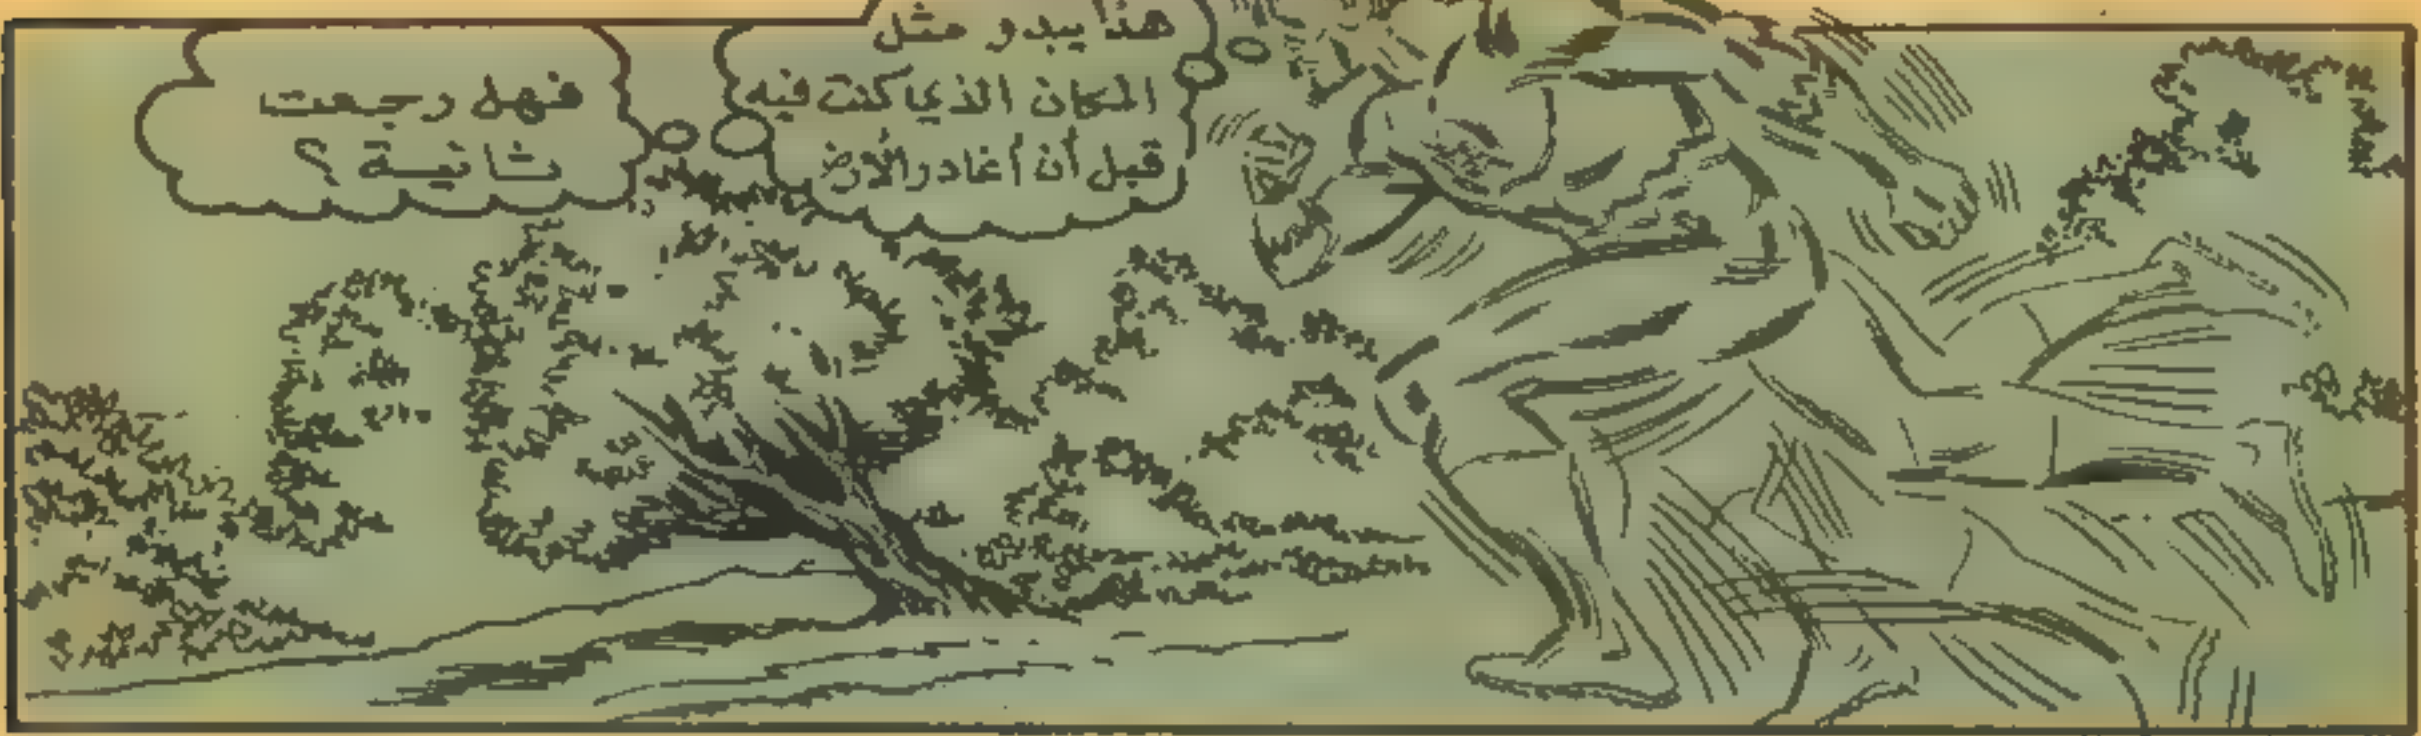 هذا يبدو مثل
المكان الذي كنت فيه
قبل أن أغادر الأرض
فهل رجعت
ثانية ؟